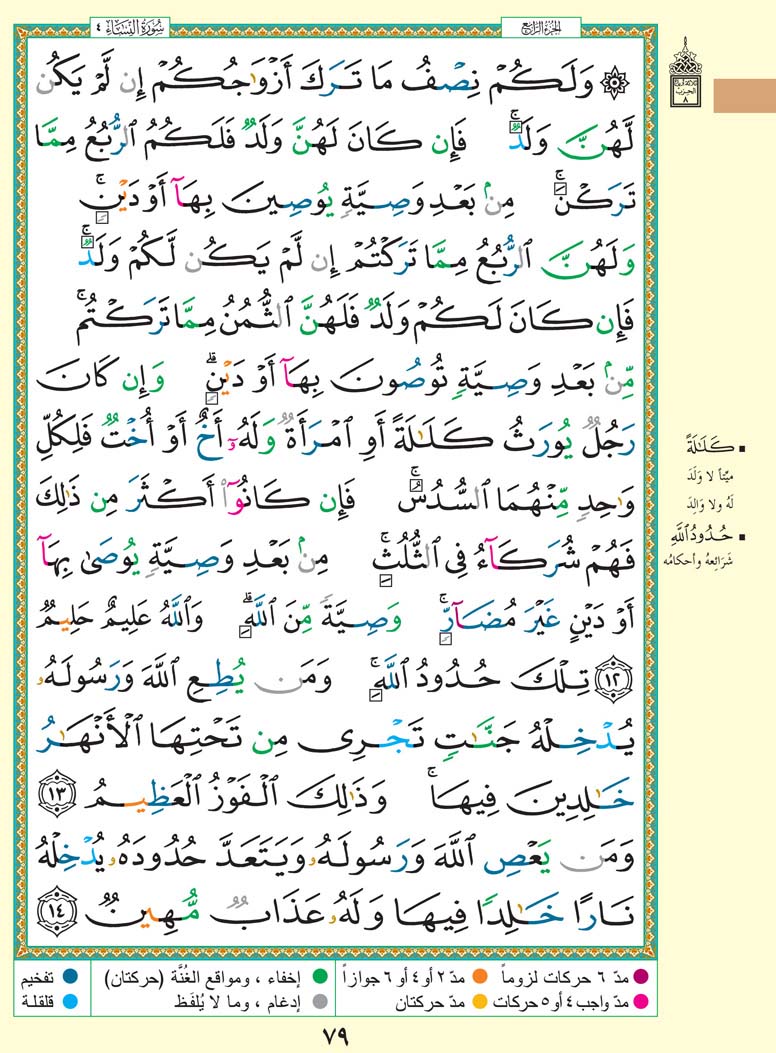 سُورَةُ النِّسَاءِ ٤
الجُزْءُ الرَّابِعُ
۞ وَلَكُمْ نِصْفُ مَا تَرَكَ أَزْوَٰجُكُمْ إِن لَّمْ يَكُن
لَّهُنَّ وَلَدٌ ۚ فَإِن كَانَ لَهُنَّ وَلَدٌ فَلَكُمُ ٱلرُّبُعُ مِمَّا
تَرَكْنَ ۚ مِنۢ بَعْدِ وَصِيَّةٍ يُوصِينَ بِهَآ أَوْ دَيْنٍ ۚ
وَلَهُنَّ ٱلرُّبُعُ مِمَّا تَرَكْتُمْ إِن لَّمْ يَكُن لَّكُمْ وَلَدٌ ۚ
فَإِن كَانَ لَكُمْ وَلَدٌ فَلَهُنَّ ٱلثُّمُنُ مِمَّا تَرَكْتُم ۚ
مِّنۢ بَعْدِ وَصِيَّةٍ تُوصُونَ بِهَآ أَوْ دَيْنٍ ۗ وَإِن كَانَ
رَجُلٌ يُورَثُ كَلَٰلَةً أَوِ ٱمْرَأَةٌ وَلَهُۥٓ أَخٌ أَوْ أُخْتٌ فَلِكُلِّ
وَٰحِدٍ مِّنْهُمَا ٱلسُّدُسُ ۚ فَإِن كَانُوٓا۟ أَكْثَرَ مِن ذَٰلِكَ
فَهُمْ شُرَكَآءُ فِى ٱلثُّلُثِ ۚ مِنۢ بَعْدِ وَصِيَّةٍ يُوصَىٰ بِهَآ
أَوْ دَيْنٍ غَيْرَ مُضَآرٍّ ۚ وَصِيَّةً مِّنَ ٱللَّهِ ۗ وَٱللَّهُ عَلِيمٌ حَلِيمٌ
١٢ تِلْكَ حُدُودُ ٱللَّهِ ۚ وَمَن يُطِعِ ٱللَّهَ وَرَسُولَهُۥ
يُدْخِلْهُ جَنَّٰتٍ تَجْرِى مِن تَحْتِهَا ٱلْأَنْهَٰرُ
خَٰلِدِينَ فِيهَا ۚ وَذَٰلِكَ ٱلْفَوْزُ ٱلْعَظِيمُ ١٣
وَمَن يَعْصِ ٱللَّهَ وَرَسُولَهُۥ وَيَتَعَدَّ حُدُودَهُۥ يُدْخِلْهُ
نَارًا خَٰلِدًا فِيهَا وَلَهُۥ عَذَابٌ مُّهِينٌ ١٤
كَلَٰلَةً
ميِّتاً لا وَلَدَ
لَهُ ولا وَالِدَ
حُدُودُ ٱللَّهِ
شَرَائِعُهُ وأحكامُه
مدّ ٦ حركات لزوماً
مدّ ٢ أو ٤ أو ٦ جوازاً
إخفاء ، ومواقع الغُنَّة (حركتان)
تفخيم
مدّ واجب ٤ أو ٥ حركات
مدّ حركتان
إدغام ، وما لا يُلفَظ
قلقلة
٧٩